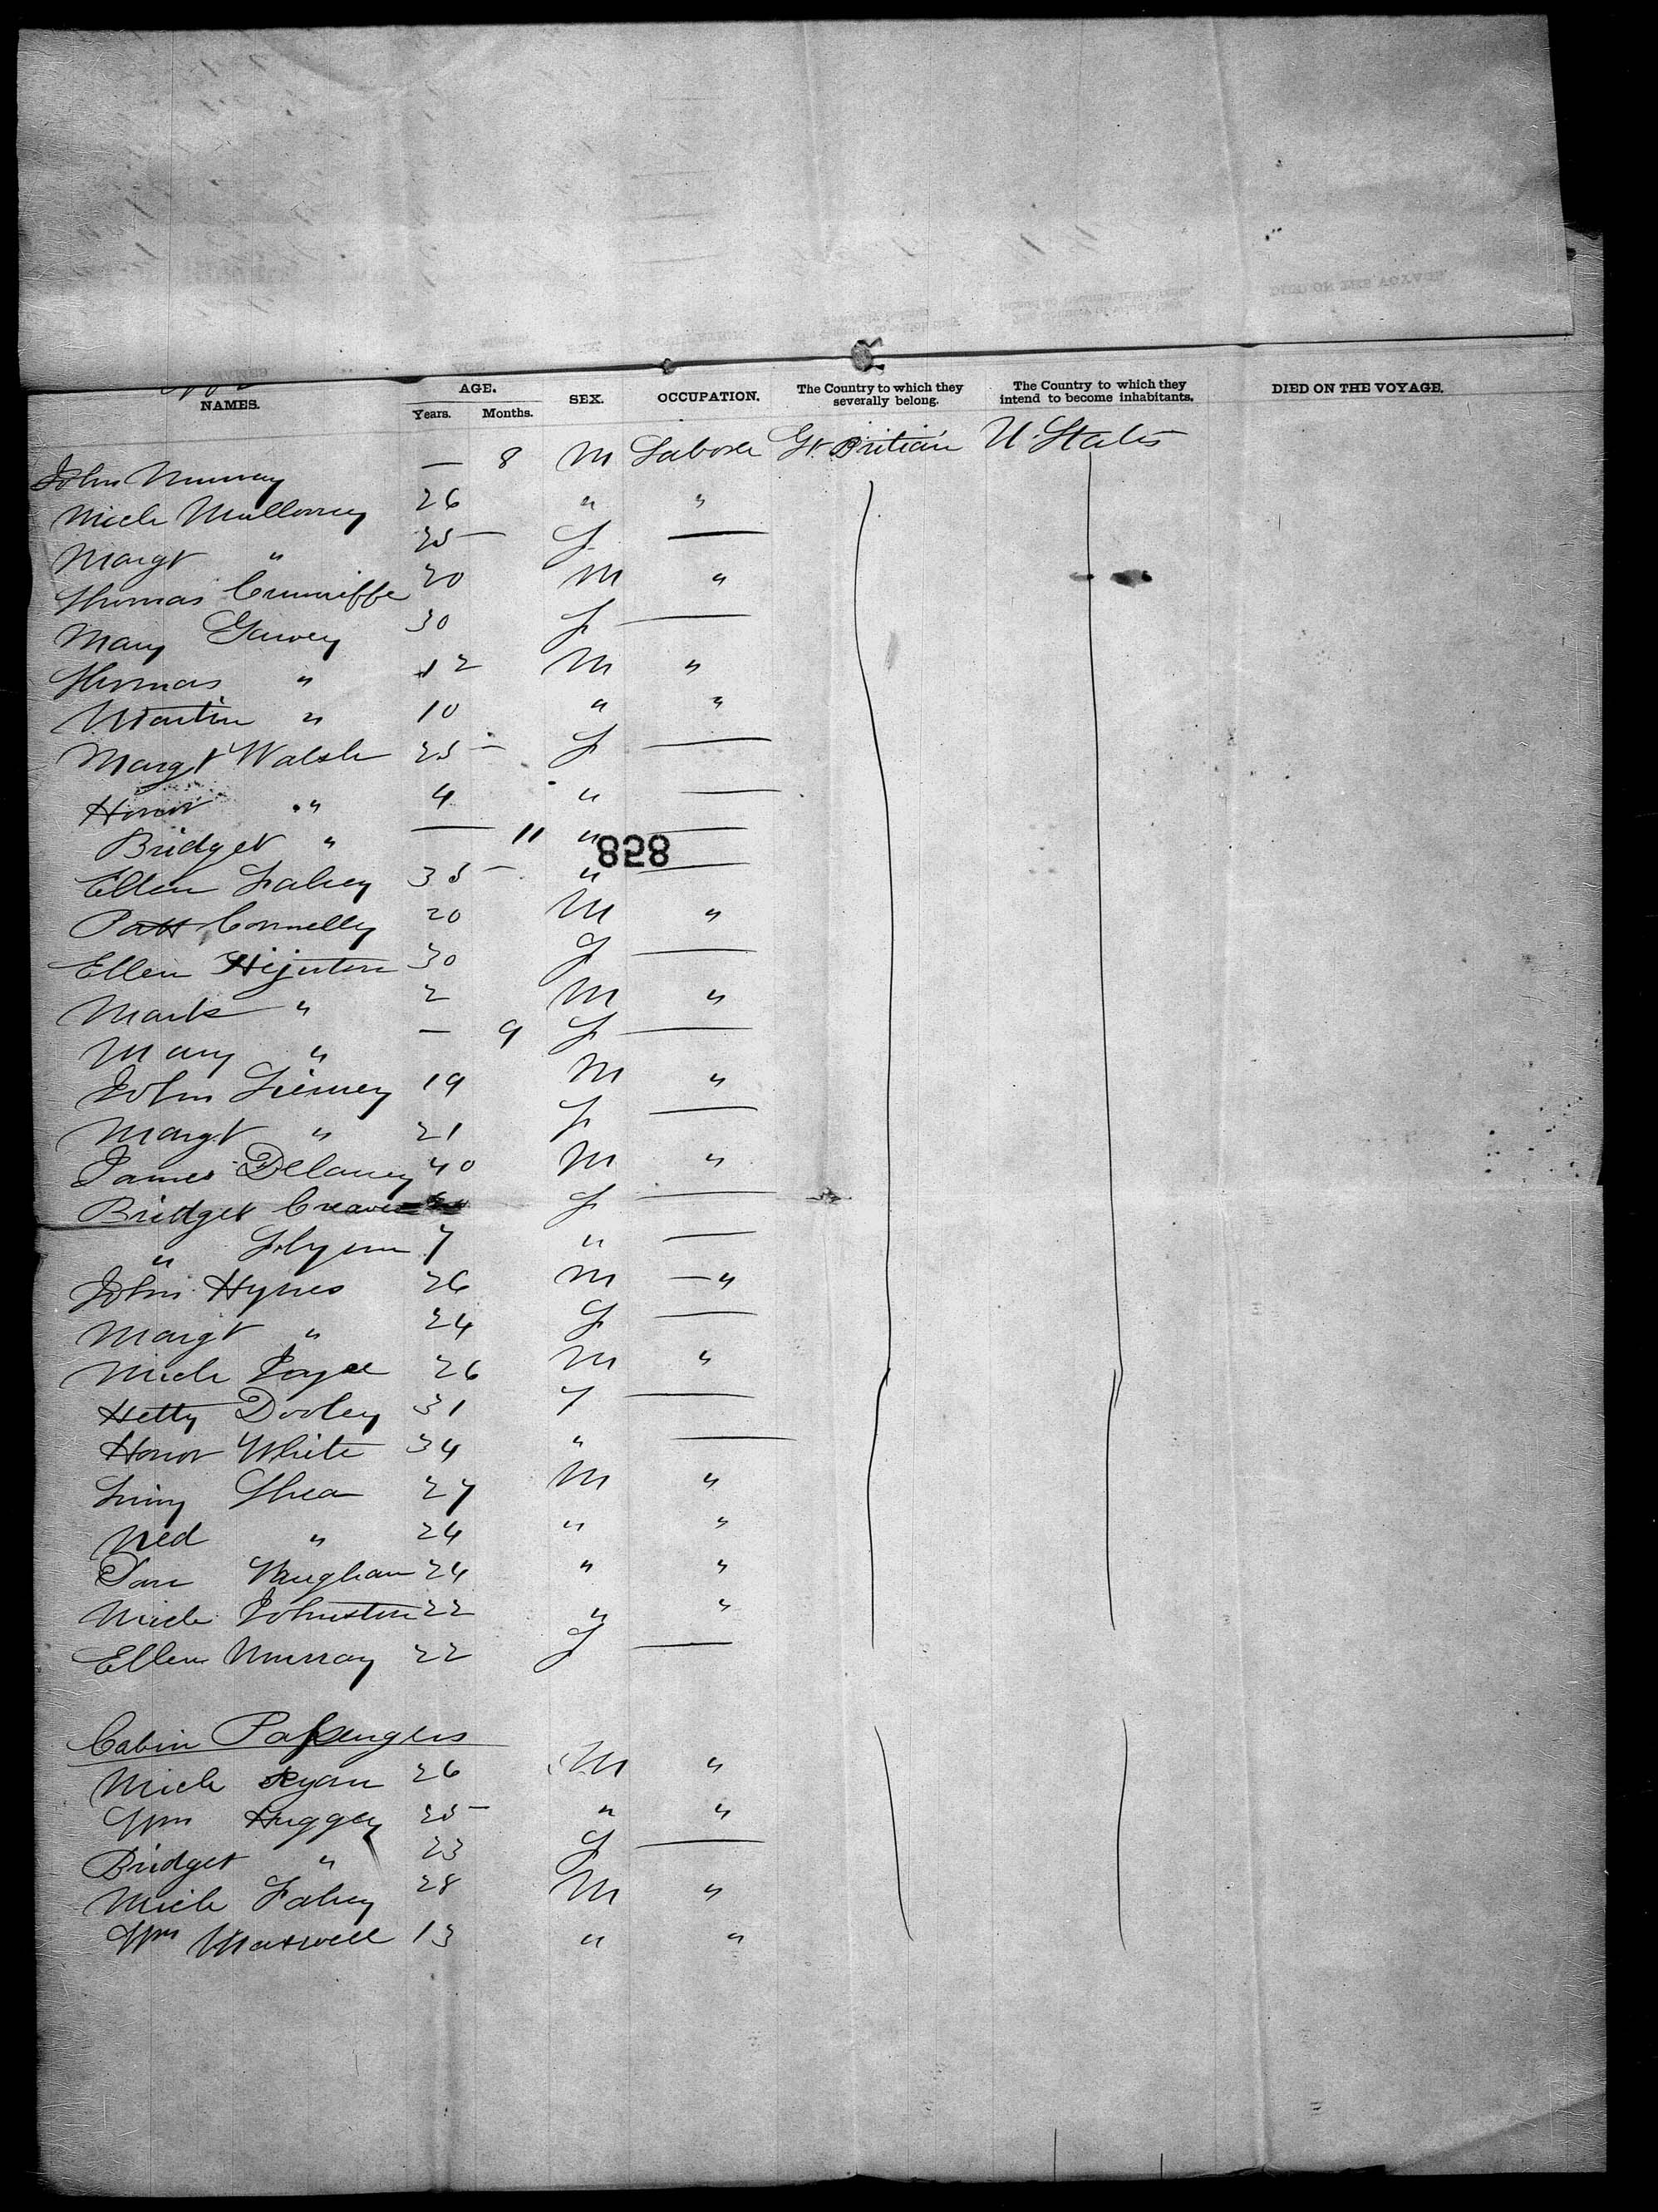 NAMES. AGE. Years. Months. SEX. OCCUPATION. The Country to which they severally belong. The Country to which they intend to become inhabitants. DIED ON THE VOYAGE.
John Murray — 8 M Laborer Gt. Britian U. States
Mich Mullowney 26 " "
Margt " 25 — f —
Thomas Cunniffe 20 M "
Mary Garvey 30 f —
Thomas " 12 M "
Martin " 10 " "
Margt Walsh 25 — f —
Honor " 4 " —
Bridget " — 11 " —
858
Ellen Fahey 35 — " —
Patt Connelly 20 M "
Ellen 30 f —
Mark " 2 M "
Mary " — 9 f —
John Tierney 19 M "
Margt " 21 f —
James Delaney 40 M "
Bridget Creaven f —
" Flynn 7 " —
John Hynes 26 M — "
Margt " 24 f —
Mich Joyce 26 M "
Hetty Dooley 31 f —
Honor White 34 " —
Shea 27 M "
Ned " 24 " "
Vaughan 24 " "
Mich Johnston 22 " "
Ellen Murray 22 f —
Cabin Passengers
Mich Ryan 26 M "
Wm Huggey 25 — " "
Bridget " 23 f —
Mich Fahey 28 M "
Wm Maxwell 13 " "